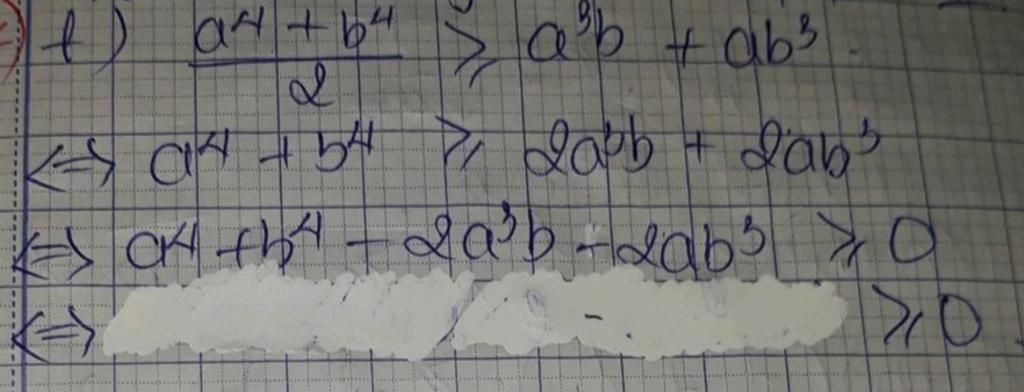 f) (a⁴ + b⁴)/2 ≥ a³b + ab³.
<=> a⁴ + b⁴ ≥ 2a³b + 2ab³
<=> a⁴ + b⁴ - 2a³b - 2ab³ ≥ 0
<=> ≥ 0